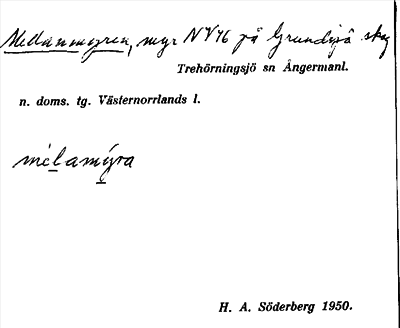 Mellanmyren, myr NV76 på Grundsjö skog
Trehörningsjö sn Ångermanl.
n. doms. tg. Västernorrlands l.
melamyra
H. A. Söderberg 1950.